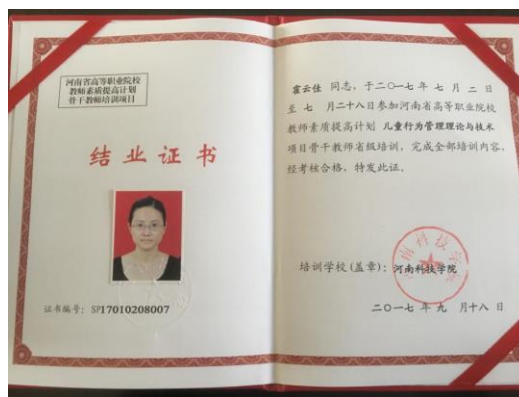 河南省高等职业院校
教师素质提高计划
骨干教师培训项目
结业证书
证书编号：SP17010208007
霍云佳 同志，于二〇一七年 七 月 二 日
至 七 月二十八日参加河南省高等职业院校
教师素质提高计划 儿童行为管理理论与技术
项目骨干教师省级培训，完成全部培训内容，
经考核合格，特发此证。
培训学校（盖章）：河南科技学院
河南科技学院
二〇一七 年 九 月十八 日